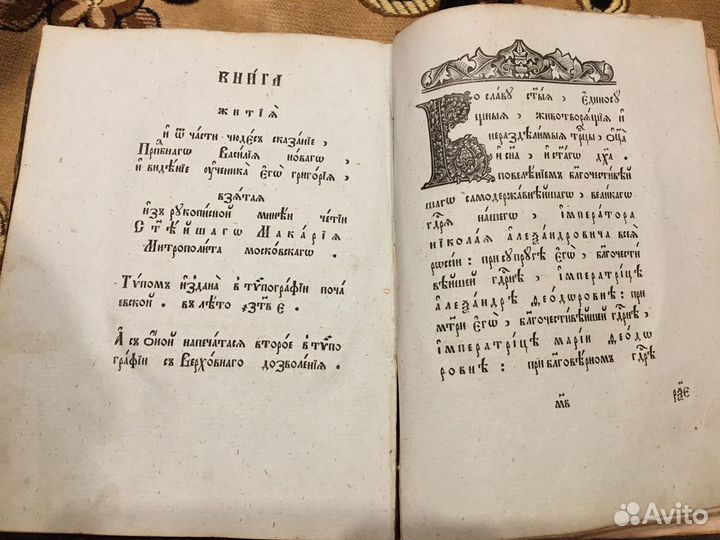 КНИ́ГА
ЖИТІѦ̀
И҆ Ѿ ча́сти чюде́съ сказа́нїе,
Прп҃бнагѡ Васи́лїѧ но́вагѡ,
и҆ видѣ́нїе ᲂу҆ченика̀ є҆гѡ̀ григо́рїѧ,
взѧ́таѧ
и҆з̾ рꙋ́кописной мине́и че́тїи
Ст҃ѣ́йшагѡ Мака́рїѧ
Митрополи́та моско́вскагѡ.
Тѷ́помъ и҆́здана в̾ тѷпогра́фїи поча́
евской. въ лѣ́то
А҆ съ ѻ҆́ной напеча́тасѧ второ́е в̾ тѷ́по
гра́фїи съ Верхо́внаго дозволе́нїѧ.
Во сла́вꙋ ст҃ы́ѧ, є҆диносꙋ́
щныѧ, животворѧ́щїѧ и҆
нераздѣли́мыѧ трⷪ҇цы, ѻ҆ц҃а̀
и҆ сн҃а, и҆ ст҃а́гѡ дх҃а.
повелѣ́нїемъ благочести́вѣй
шагѡ самодержа́внѣйшагѡ, вели́кагѡ
гдⷭ҇рѧ на́шегѡ, і҆мпера́тора
никола́ѧ а҆леѯа́ндровича всеѧ̀
рѡссі́и: при сꙋпрꙋ́гѣ є҆гѡ̀, бл҃гочести́
вѣйшей гдⷭ҇рнѣ, і҆мпера́трїцѣ
а҆леѯа́ндрѣ ѳео́дѡровнѣ: при
мт҃ри є҆гѡ̀, бл҃гочести́вѣйшей гдⷭ҇рнѣ,
і҆мпера́трїцѣ марі́и ѳео́дѡ
ровнѣ: при бл҃говѣ́рномъ гдⷭ҇рѣ
Avito